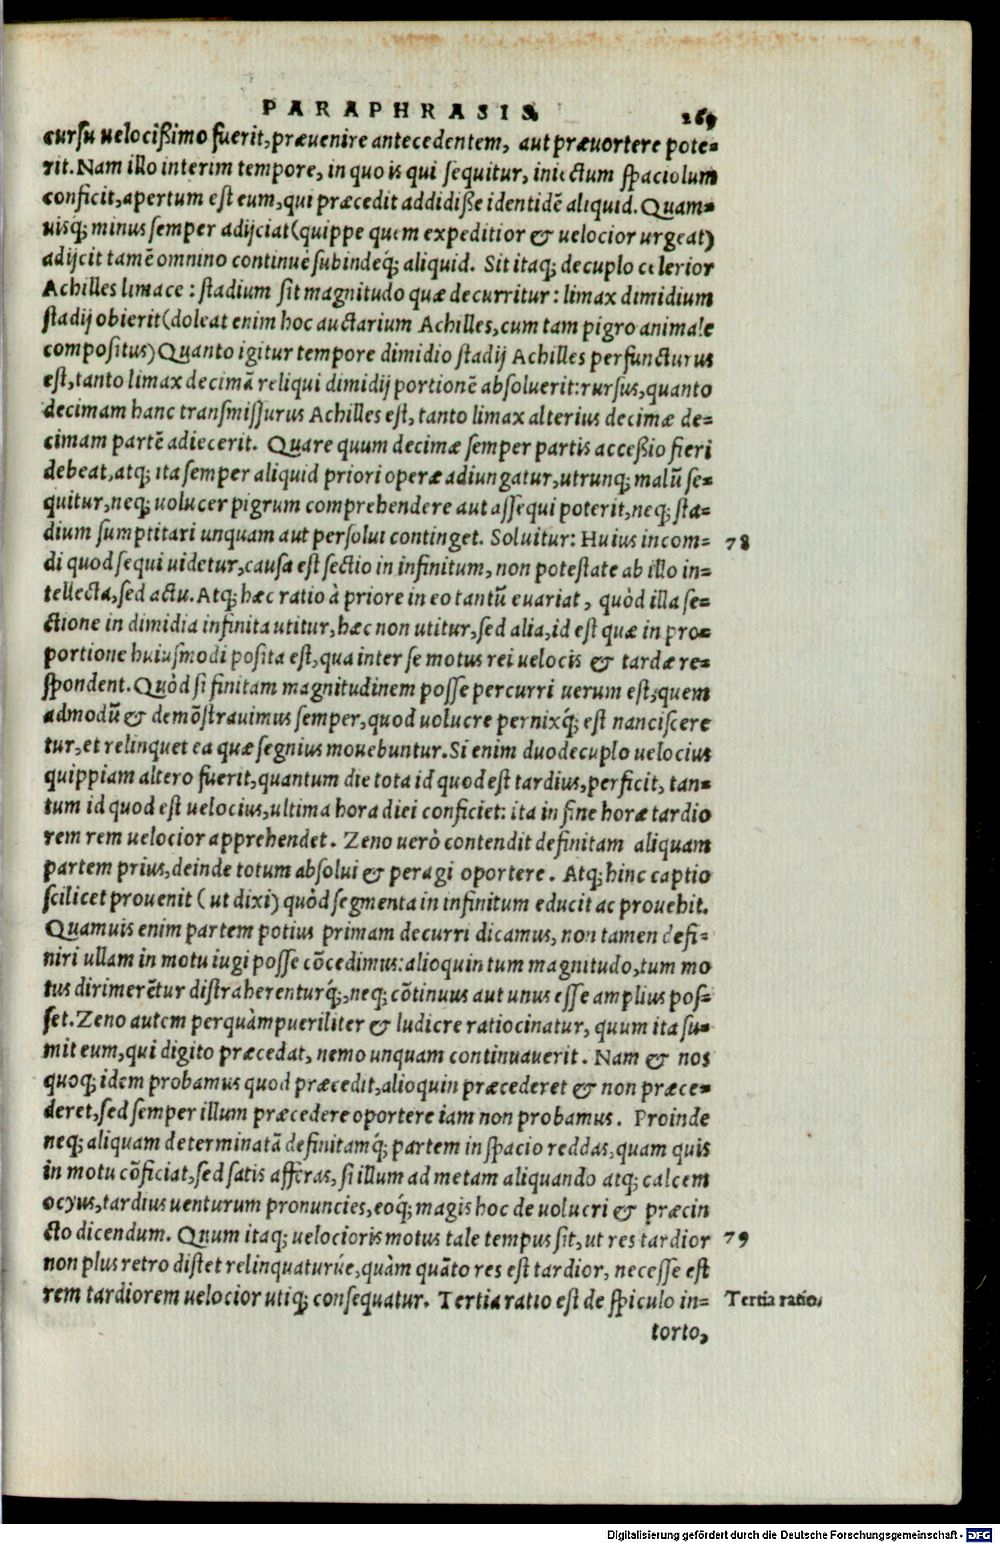 PARAPHRASIS 269
cursu uelocißimo fuerit, præuenire antecedentem, aut præuortere pote=
rit. Nam illo interim tempore, in quo is qui sequitur, iniectum spaciolum
conficit, apertum est eum, qui præcedit addidiße identidẽ aliquid. Quam=
uisq; minus semper adijciat (quippe quem expeditior & uelocior urgeat)
adijcit tamẽ omnino continuè subindeq́; aliquid. Sit itaq; decuplo celerior
Achilles limace: stadium sit magnitudo quæ decurritur: limax dimidium
stadij obierit (doleat enim hoc auctarium Achilles, cum tam pigro animale
compositus) Quanto igitur tempore dimidio stadij Achilles perfuncturus
est, tanto limax decimã reliqui dimidij portionẽ absoluerit: rursus, quanto
decimam hanc transmissurus Achilles est, tanto limax alterius decimæ de=
cimam partẽ adiecerit. Quare quum decimæ semper partis accessio fieri
debeat, atq; ita semper aliquid priori operæ adiungatur, utrunq; malũ se=
quitur, neq; uolucer pigrum comprehendere aut assequi poterit, neq; sta=
dium sumptitari unquam aut persolui continget. Soluitur: Huius incom= 78
di quod sequi uidetur, causa est sectio in infinitum, non potestate ab illo in=
tellecta, sed actu. Atq; hæc ratio à priore in eo tantũ euariat, quòd illa se=
ctione in dimidia infinita utitur, hæc non utitur, sed alia, id est quæ in pro=
portione huiusmodi posita est, qua inter se motus rei uelocis & tardæ re=
spondent. Quòd si finitam magnitudinem posse percurri uerum est, quem
admodũ & demõstrauimus semper, quod uolucre pernixq́; est nanciscere
tur, et relinquet ea quæ segnius mouebuntur. Si enim duodecuplo uelocius
quippiam altero fuerit, quantum die tota id quod est tardius, perficit, tan=
tum id quod est uelocius, ultima hora diei conficiet: ita in fine horæ tardio
rem rem uelocior apprehendet. Zeno uerò contendit definitam aliquam
partem prius, deinde totum absolui & peragi oportere. Atq; hinc captio
scilicet prouenit (ut dixi) quòd segmenta in infinitum educit ac prouehit.
Quamuis enim partem potius primam decurri dicamus, non tamen defi=
niri ullam in motu iugi posse cõcedimus: alioquin tum magnitudo, tum mo
tus dirimerẽtur distraherenturq́;, neq; cõtinuus aut unus esse amplius pos=
set. Zeno autem perquàm pueriliter & ludicre ratiocinatur, quum ita su=
mit eum, qui digito præcedat, nemo unquam continuauerit. Nam & nos
quoq; idem probamus quod præcedit, alioquin præcederet & non præce=
deret, sed semper illum præcedere oportere iam non probamus. Proinde
neq; aliquam determinatã definitamq́; partem in spacio reddas, quam quis
in motu cõficiat, sed satis afferas, si illum ad metam aliquando atq; calcem
ocyus, tardius uenturum pronuncies, eoq́; magis hoc de uolucri & præcin
cto dicendum. Quum itaq; uelocioris motus tale tempus sit, ut res tardior 79
non plus retro distet relinquaturúe, quàm quãto res est tardior, necesse est
rem tardiorem uelocior utiq; consequatur. Tertia ratio est de spiculo in= Tertia ratio.
torto,
Digitalisierung gefördert durch die Deutsche Forschungsgemeinschaft - DFG